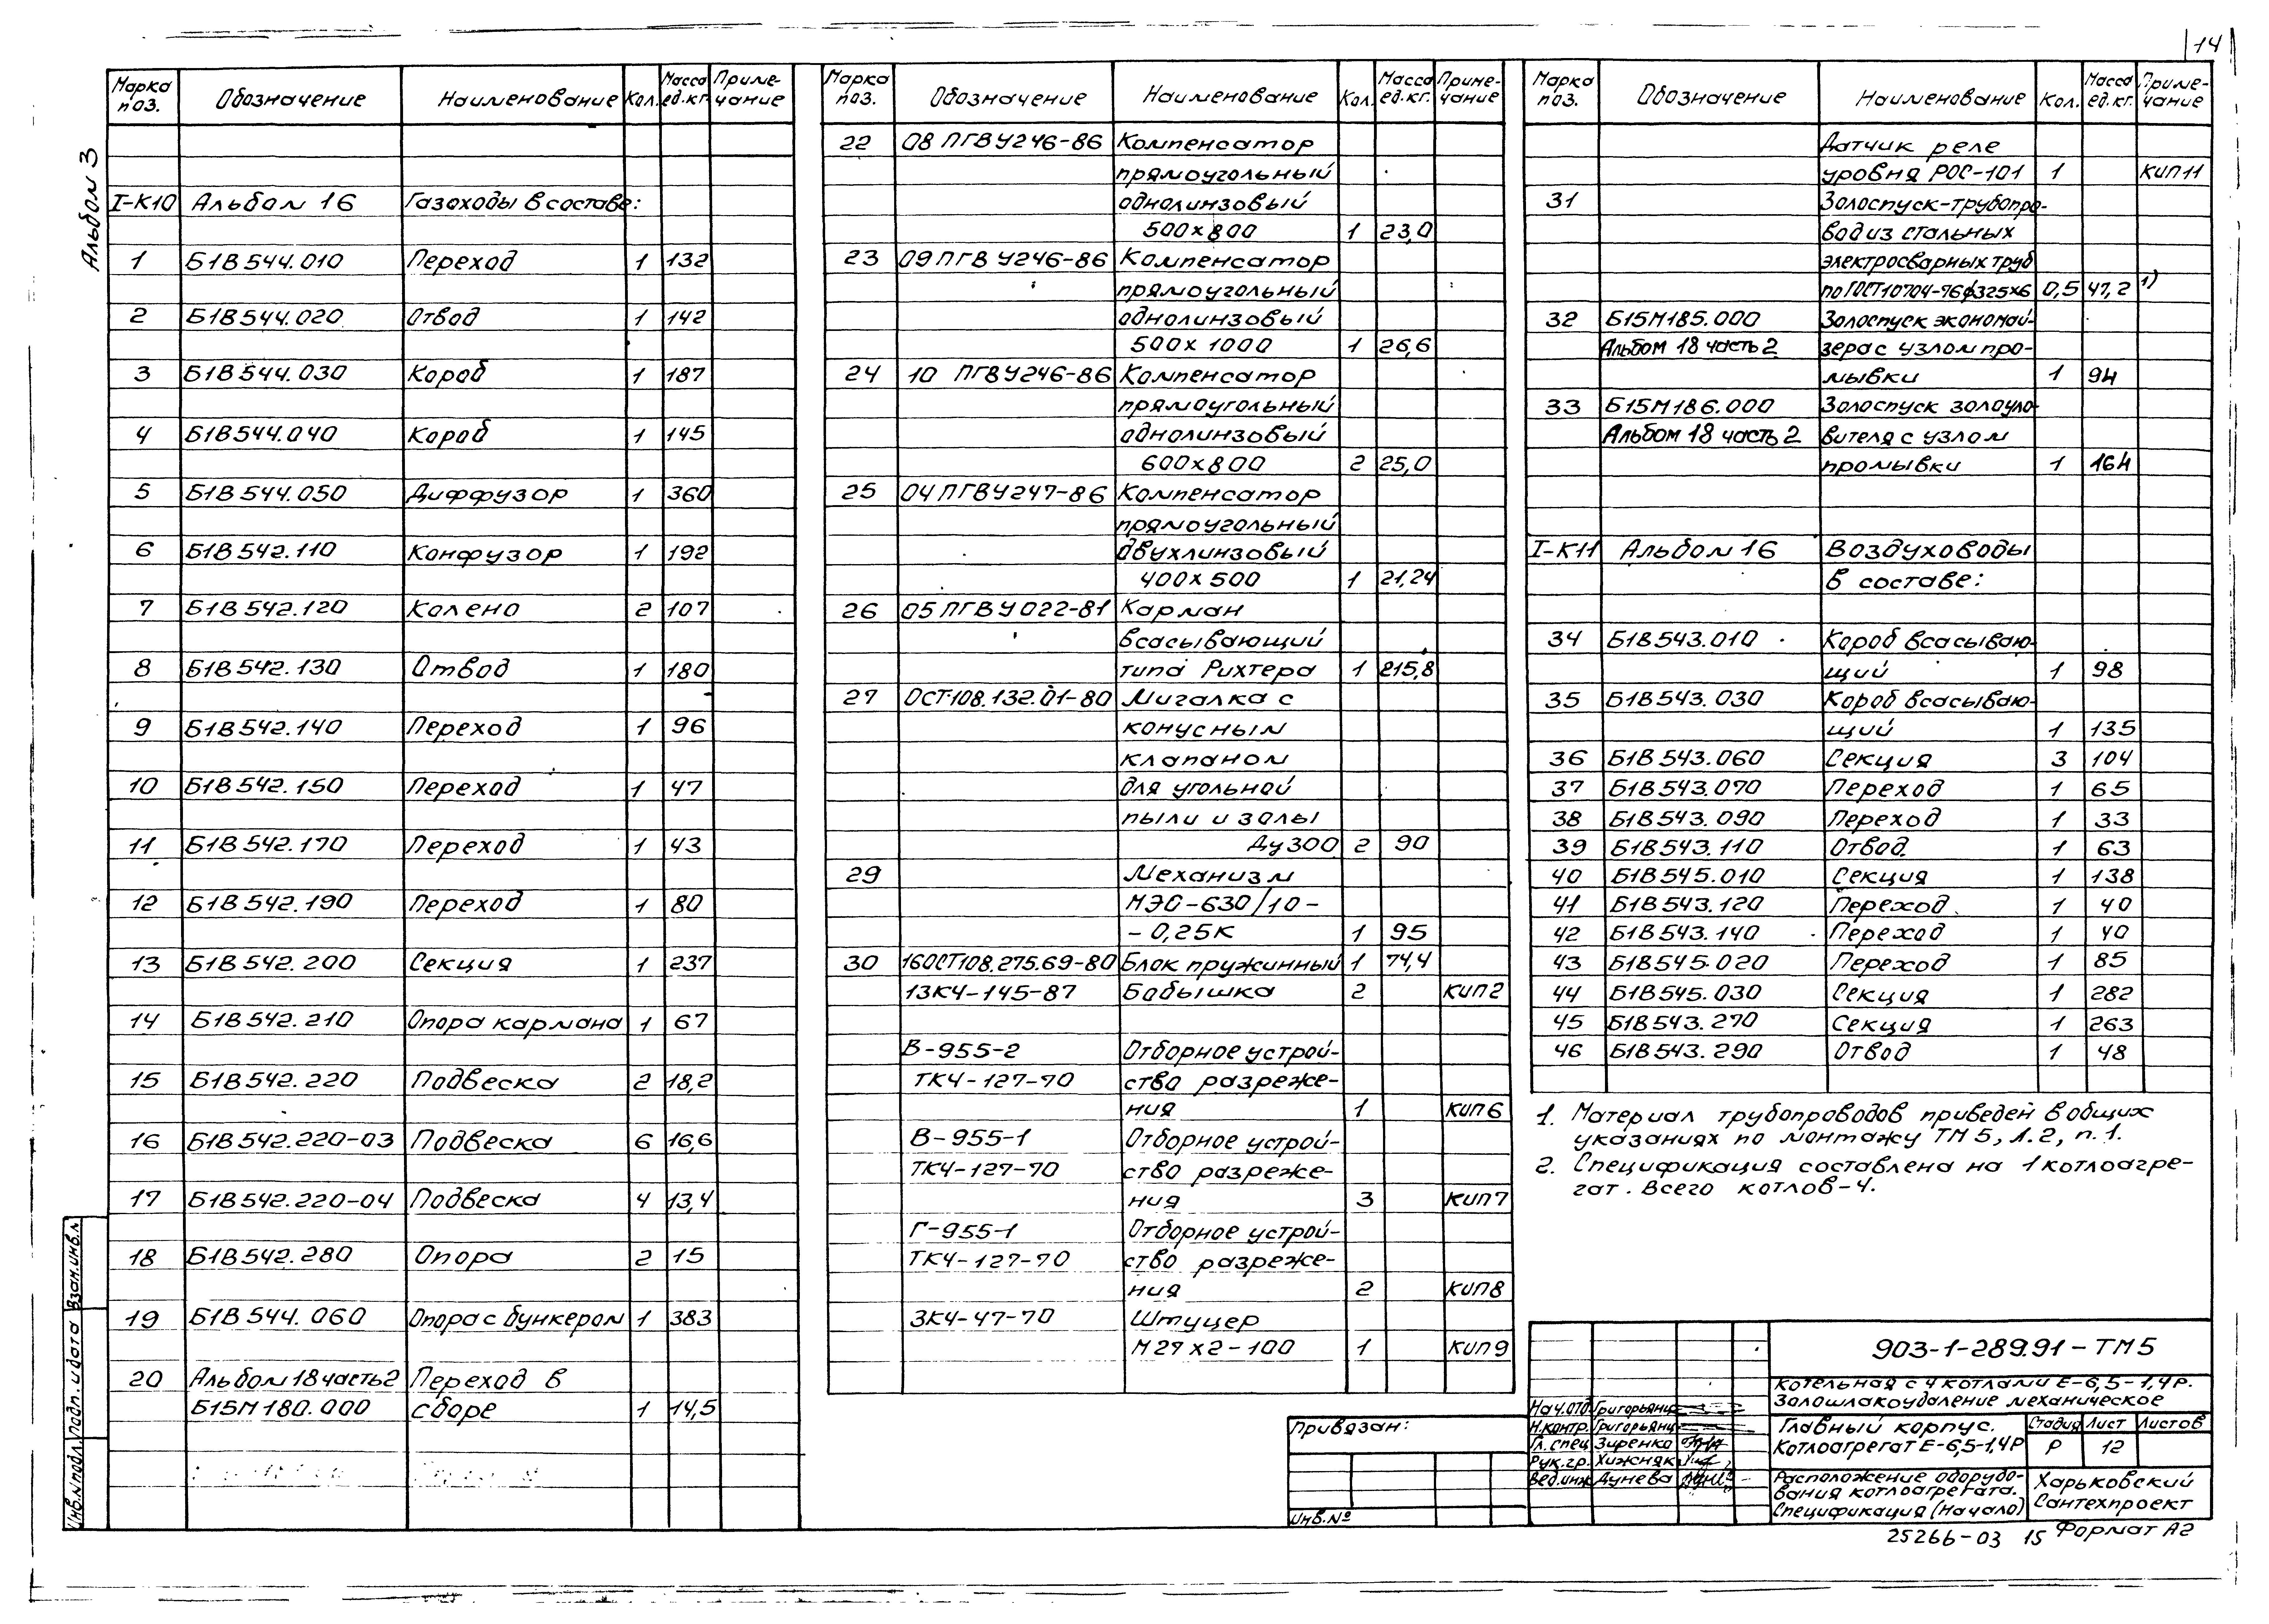 14
Альбом 3
Марка поз. Обозначение Наименование Кол. Масса ед.кг. Приме-чание
I-К10 Альбом 16 Газоходы в составе:
1 Б1В544.010 Переход 1 132
2 Б1В544.020 Отвод 1 142
3 Б1В544.030 Короб 1 187
4 Б1В544.040 Короб 1 145
5 Б1В544.050 Диффузор 1 360
6 Б1В542.110 Конфузор 1 192
7 Б1В542.120 Колено 2 107
8 Б1В542.130 Отвод 1 180
9 Б1В542.140 Переход 1 96
10 Б1В542.150 Переход 1 47
11 Б1В542.170 Переход 1 43
12 Б1В542.190 Переход 1 80
13 Б1В542.200 Секция 1 237
14 Б1В542.210 Опора кармана 1 67
15 Б1В542.220 Подвеска 2 18,2
16 Б1В542.220-03 Подвеска 6 16,6
17 Б1В542.220-04 Подвеска 4 13,4
18 Б1В542.280 Опора 2 15
19 Б1В544.060 Опора с бункером 1 383
20 Альбом 18 часть 2 Переход в
Б15М180.000 сборе 1 14,5
Марка поз. Обозначение Наименование Кол. Масса ед.кг. Приме-чание
22 08 ПГВУ246-86 Компенсатор
прямоугольный
однолинзовый
500х800 1 23,0
23 09 ПГВУ246-86 Компенсатор
прямоугольный
однолинзовый
500х1000 1 26,6
24 10 ПГВУ246-86 Компенсатор
прямоугольный
однолинзовый
600х800 2 25,0
25 04 ПГВУ247-86 Компенсатор
прямоугольный
двухлинзовый
400х500 1 21,24
26 05 ПГВУ022-81 Карман
всасывающий
типа Рихтера 1 215,8
27 ОСТ108.132.01-80 Мигалка с
конусным
клапаном
для угольной
пыли и золы
Ду300 2 90
29 Механизм
МЭО-630/10-
-0,25К 1 95
30 16ОСТ108.275.69-80 Блок пружинный 1 74,4
13К4-145-87 Бобышка 2 КИП2
В-955-2 Отборное устрой-
ТК4-127-70 ство разреже-
ния 1 КИП6
В-955-1 Отборное устрой-
ТК4-127-70 ство разреже-
ния 3 КИП7
Г-955-1 Отборное устрой-
ТК4-127-70 ство разреже-
ния 2 КИП8
3К4-47-70 Штуцер
М27х2-100 1 КИП9
Марка поз. Обозначение Наименование Кол. Масса ед.кг. Приме-чание
Датчик реле
уровня РОС-101 1 КИП11
31 Золоспуск-трубопро-
вод из стальных
электросварных труб
по ГОСТ10704-76 ф325х6 0,5 47,2 1)
32 Б15М185.000 Золоспуск экономай-
Альбом 18 часть 2 зера с узлом про-
мывки 1 94
33 Б15М186.000 Золоспуск золоуло-
Альбом 18 часть 2 вителя с узлом
промывки 1 164
I-К11 Альбом 16 Воздуховоды
в составе:
34 Б1В543.010 Короб всасываю-
щий 1 98
35 Б1В543.030 Короб всасываю-
щий 1 135
36 Б1В543.060 Секция 3 104
37 Б1В543.070 Переход 1 65
38 Б1В543.090 Переход 1 33
39 Б1В543.110 Отвод 1 63
40 Б1В545.010 Секция 1 138
41 Б1В543.120 Переход 1 40
42 Б1В543.140 Переход 1 40
43 Б1В545.020 Переход 1 85
44 Б1В545.030 Секция 1 282
45 Б1В543.270 Секция 1 263
46 Б1В543.290 Отвод 1 48
1. Материал трубопроводов приведен в общих
указаниях по монтажу ТМ5, л.2, п.1.
2. Спецификация составлена на 1 котлоагре-
гат. Всего котлов-4.
Привязан:
Инв.№
903-1-289.91-ТМ5
Котельная с 4 котлами Е-6,5-1,4Р.
Золошлакоудаление механическое
Нач.отд. Григорьянц
Н.контр. Григорьянц
Гл.спец. Зиренко
Рук.гр. Хижняк
Вед.инж. Дунева
Главный корпус.
Котлоагрегат Е-6,5-1,4Р
Стадия Лист Листов
Р 12
Расположение оборудо-
вания котлоагрегата.
Спецификация (Начало)
Харьковский
Сантехпроект
25266-03 15 Формат А2
Инв.№подл. Подп. и дата Взам.инв.№